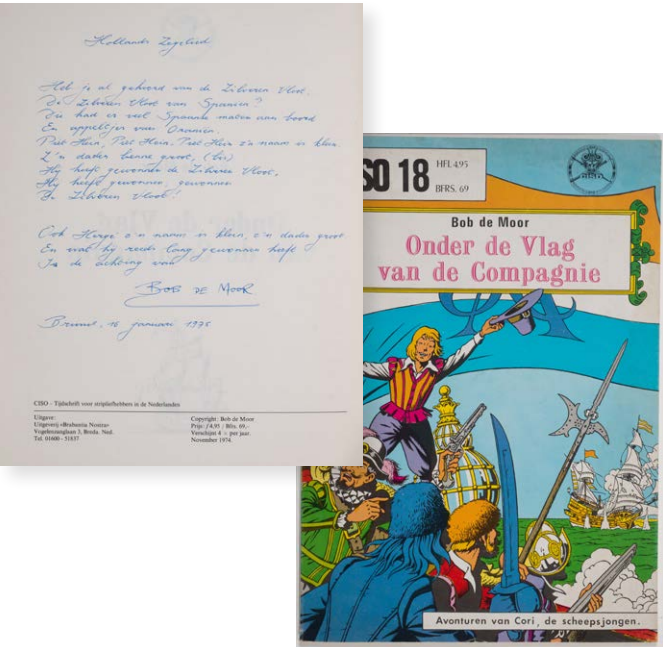 Hollands Zegelied
Heb je al gehoord van de Zilveren Vloot,
De Zilveren Vloot van Spanien?
Die had er veel Spaanse matten aan boord
En appeltjes van Oranien.
Piet Hein, Piet Hein, Piet Hein z'n naam is klein
Z'n daden benne groot, (bis)
Hij heeft gewonnen de Zilveren Vloot,
Hij heeft gewonnen, gewonnen
De Zilveren Vloot!
Ook Hergé z'n naam is klein, z'n daden groot
En wat hij reeds lang gewonnen heeft
Is de achting van
BOB DE MOOR
Brussel, 16 januari 1975
CISO - Tijdschrift voor stripliefhebbers in de Nederlanden
Uitgave:
Uitgeverij «Brabantia Nostra»
Vogelenzanglaan 3, Breda. Ned.
Tel. 01600 - 51837
Copyright: Bob de Moor
Prijs: f 4,95 / Bfrs. 69,-
Verschijnt 4 × per jaar.
November 1974.
SO 18
HFL 4.95
BFRS. 69
Bob de Moor
Onder de Vlag
van de Compagnie
Avonturen van Cori, de scheepsjongen.